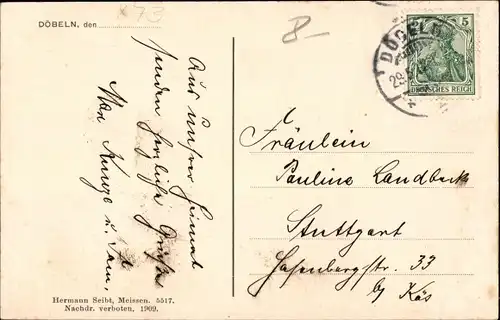 x73
DÖBELN, den
8-
5
DEUTSCHES REICH
DÖBELN
29
Aus unsrer Heimat
senden herzliche Grüße
Max Kunze u. Fam.
Fräulein
Pauline Landbeck
Stuttgart
Hasenbergstr. 33
by Käs
Hermann Seibt, Meissen. 5517.
Nachdr. verboten, 1909.